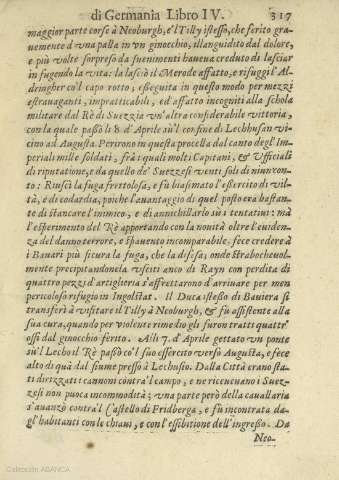 di Germania Libro IV. 317
maggior parte corse à Neoburgh, e'l Tilly istesso, che ferito gra-
uemente d'vna palla in vn ginocchio, illanguidito dal dolore,
e più volte sorpreso da suenimenti haueua creduto di lasciar
in fugendo la vita: la lasciò il Merode affatto, e rifuggì l'Al-
dringher co'l capo rotto; eseguita in questo modo per mezzi
estrauaganti, impratticabili, ed affatto incogniti alla schola
militare dal Rè di Suezzia vn'altra considerabile vittoria,
con la quale passò li 8 d'Aprile sù'l confine di Lechhusan vi-
cino ad Augusta. Perirono in questa procella dal canto degl'Im-
periali mille soldati, frà i quali molti Capitani, & Vfficiali
di riputatione, e da quello de' Suezzesi venti soli di niun con-
to: Riuscì la fuga frettolosa, e fù biasimato l'essercito di vil-
tà, e di codardia, poiche l'auantaggio di quel posto era bastan-
te di stancare l'inimico, e di annichillarlo sù i tentatiui: mà
l'esperimento del Rè apportando con la nouità oltre l'euiden-
za del danno terrore, e spauento incomparabile, fece credere à
i Bauari più sicura la fuga, che la difesa; onde strabocheuol-
mente precipitandonela vsciti anco di Rayn con perdita di
quattro pezzi d'artiglieria s'affrettarono d'arriuare per men
pericoloso rifugio in Ingolstat. Il Duca istesso di Bauiera si
transferì à visitare il Tilly à Neoburgh, & fù assistente alla
sua cura, quando per violente rimedio gli furon tratti quattr'
ossi dal ginocchio ferito. Alli 7. d'Aprile gettato vn ponte
sù'l Lecho il Rè passò co'l suo essercito verso Augusta, e fece
alto di quà dal fiume presso à Lechusio. Dalla Città erano sta-
ti dirizzati i cannoni contra'l campo, e ne riceueuano i Suez-
zesi non puoca incommodità; vna parte però della cauallaria
s'auanzò contra'l Castello di Fridberga, e fù incontrata da-
gl'habitanti con le chiaui, e con l'essibitione dell'ingresso. Da
Neo-
Colección ABANCA